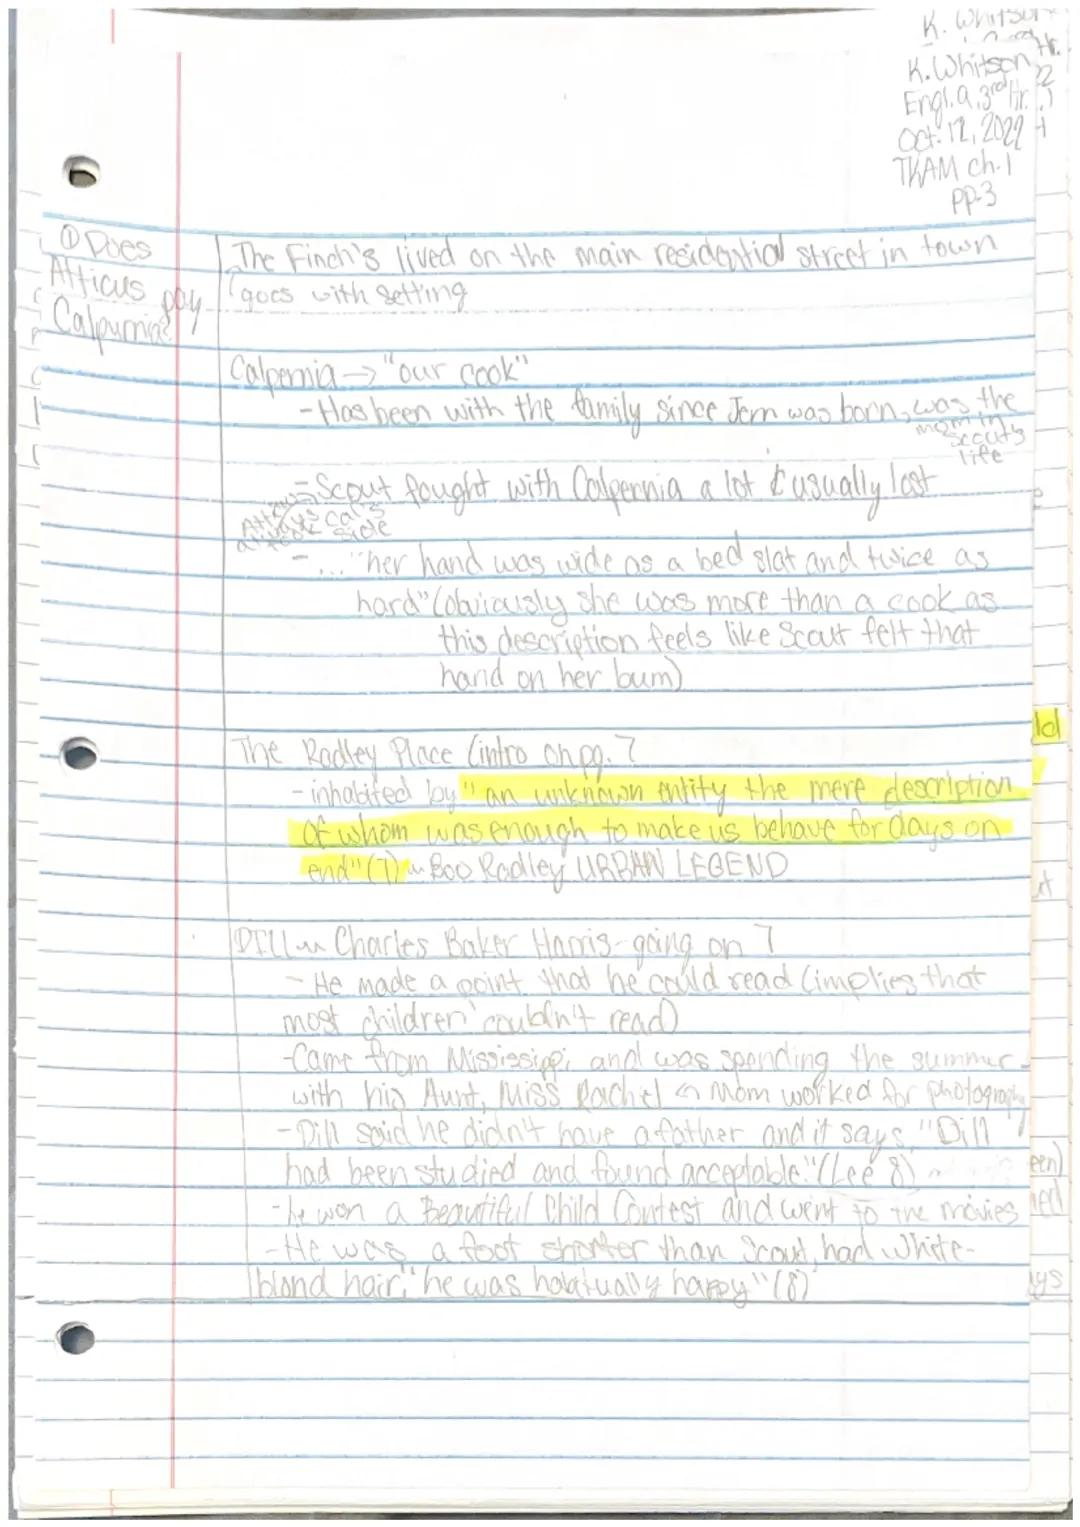 K. Whitson
K. Whitson
Engl. 9, 3rd Hr.
Oct. 12, 2022
TKAM ch. 1
pp. 3
① Does
Atticus pay
Calpurnia?
The Finch's lived on the main residential street in town
goes with setting
Calpernia → "our cook"
- Has been with the family since Jem was born, was the
mom in
Scout's
life
- Scout fought with Calpernia a lot & usually lost
Atticus
always
took Cal's
side
- ... "her hand was wide as a bed slat and twice as
hard" (obviously she was more than a cook as
this description feels like Scout felt that
hand on her bum)
The Radley Place (intro on pg. 7
- inhabited by "an unknown entity the mere description
of whom was enough to make us behave for days on
end" (7) Boo Radley URBAN LEGEND
DILL Charles Baker Harris - going on 7
- He made a point that he could read (implies that
most children couldn't read)
- Came from Mississippi and was spending the summer
with his Aunt, Miss Rachel Mom worked for photography
- Dill said he didn't have a father and it says, "Dill
had been studied and found acceptable." (Lee 8)
- he won a Beautiful Child Contest and went to the movies
- He was a foot shorter than Scout, had white-
blond hair, "he was habitually happy" (8)